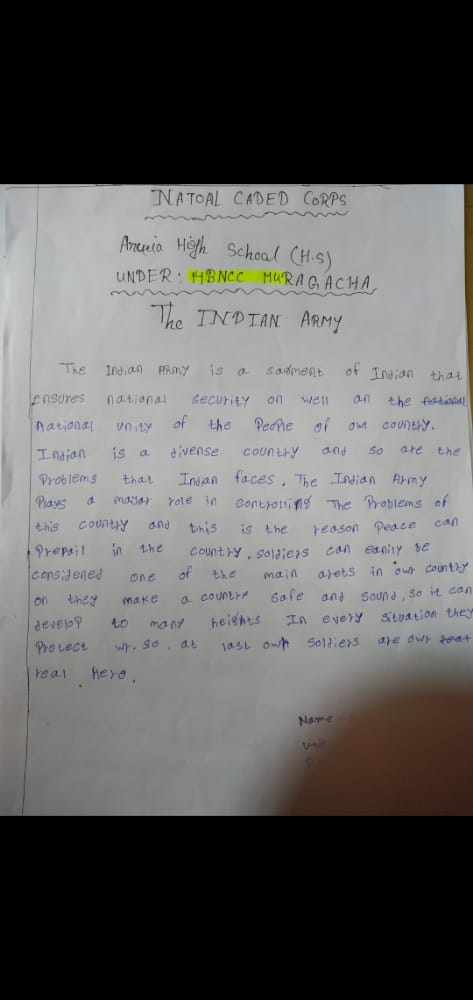 NATOAL CADED CORPS
High School (H.S)
UNDER: 14BNCC MURAGACHA
The INDIAN ARMY
The Indian ARMY is a sagment of Indian that
ensures national security on well an the national
national unity of the People of owr country.
Indian is a divense country and so are the
Problems that Indian faces. The Indian Army
Plays a magar role in Controlling The Problems of
this country and this is the reason Peace can
Prepail in the country. soldiers can eanily be
considened one of the main arets in owr country
on they make a country safe and sound, so it can
develop to many heights In every situation they
Protect wr. so, at last own soldiers are owr reat
real hero.
Name -
Unit